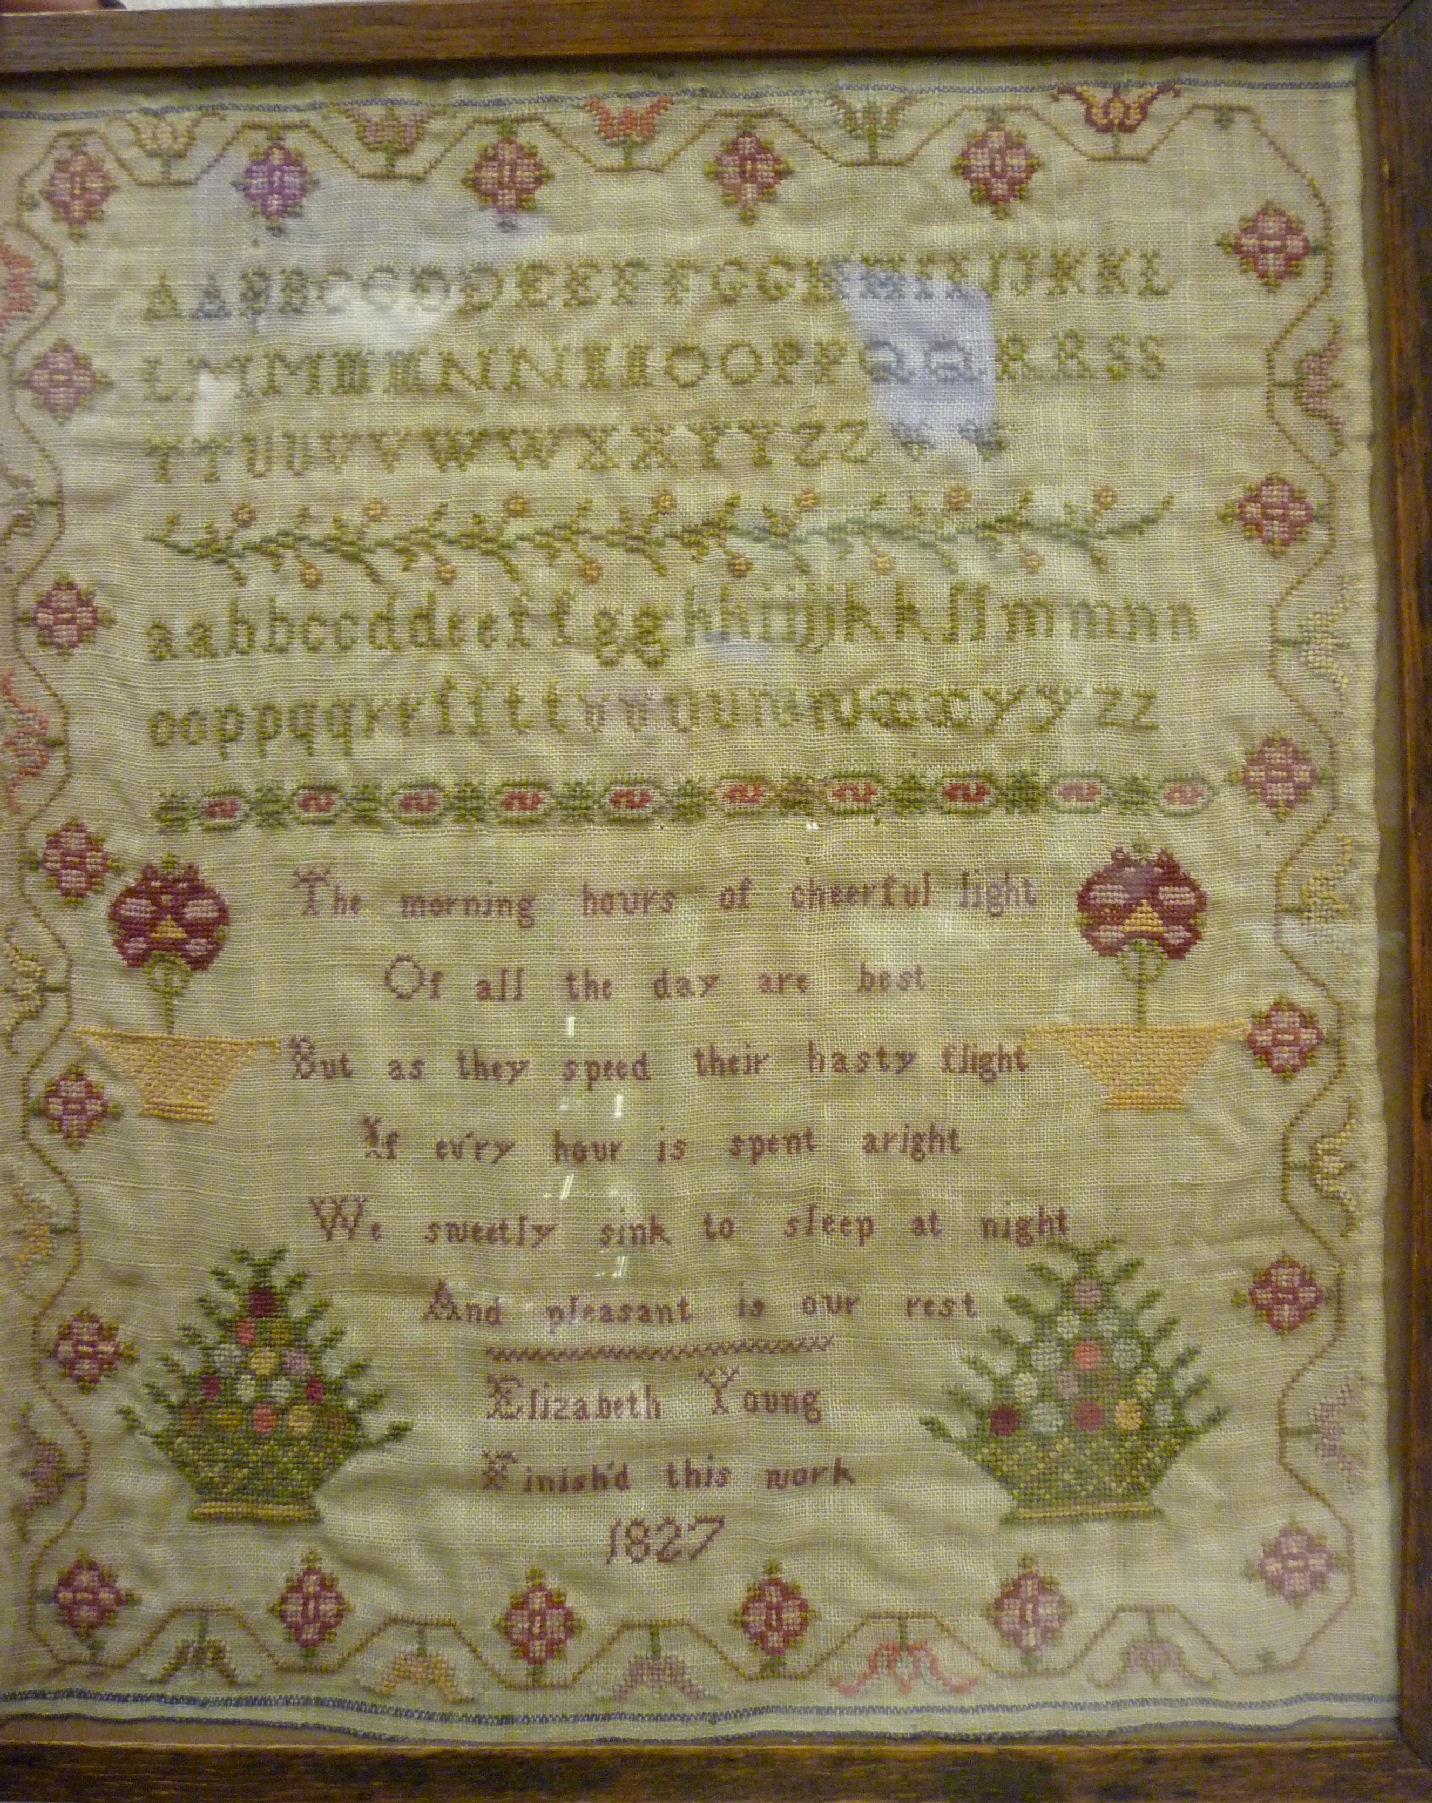 A A B B C C D D E E F F G G H H I I J J K K L
L M M N N O O P P Q Q R R S S
T T U U V V W W X X Y Y Z Z
a a b b c c d d e e f f g g h h i i j j k k l l m m n n
o o p p q q r r s s t t u u v v w w x x y y z z
The morning hours of cheerful light
Of all the day are best
But as they speed their hasty flight
If ev'ry hour is spent aright
We sweetly sink to sleep at night
And pleasant is our rest
Elizabeth Young
Finish'd this work
1827